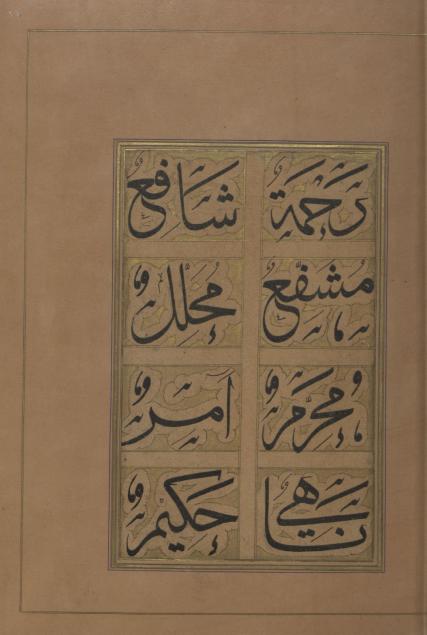 رَحْمَة شَافِعٌ
مُشَفَّعٌ مُحَلِّلٌ
مُحَرِّمٌ آمِرٌ
نَاهِي حَكِيمٌ